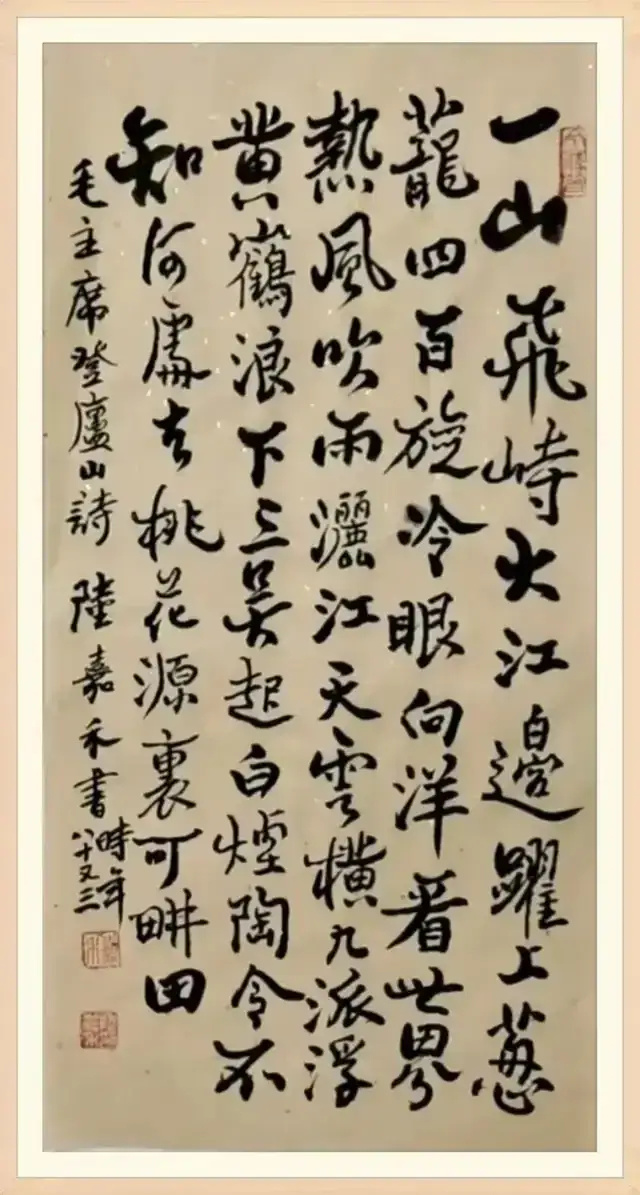 一山飛峙大江邊躍上葱
蘢四百旋冷眼向洋看世界
熱風吹雨灑江天雲橫九派浮
黄鶴浪下三吴起白煙陶令不
知何處去桃花源裏可畊田
毛主席登廬山詩 陸嘉禾書時年
八十又三